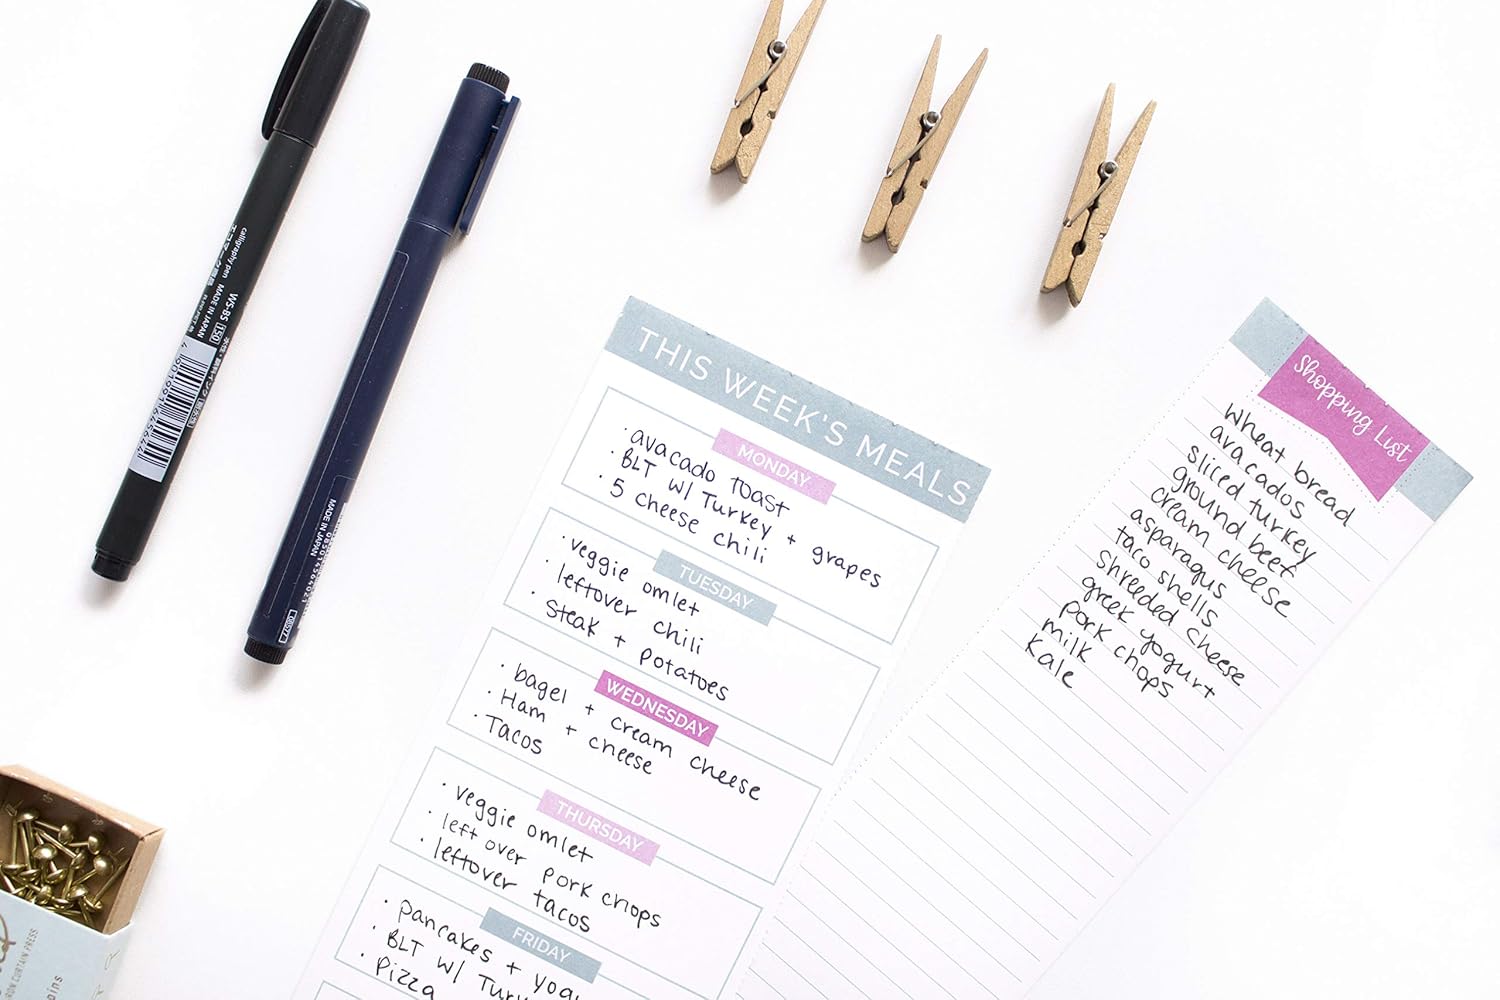 calligraphy pen WS-BS 150
MADE IN JAPAN
4 901991 645644
MADE IN JAPAN
085014564021
GBS7
THIS WEEK'S MEALS
MONDAY
· avacado Toast
· BLT w/ Turkey + grapes
· 5 cheese chili
TUESDAY
· veggie omlet
· leftover chili
· Steak + potatoes
WEDNESDAY
· bagel + cream cheese
· Ham + cheese
· Tacos
THURSDAY
· veggie omlet
· left over pork chops
· leftover tacos
FRIDAY
· pancakes +
· BLT w/
· Pizza
Shopping List
wheat bread
avacados
sliced turkey
ground beef
cream cheese
asparagus
taco shells
Shreeded cheese
greek yogurt
pork chops
milk
Kale
CURTAIN PRESS